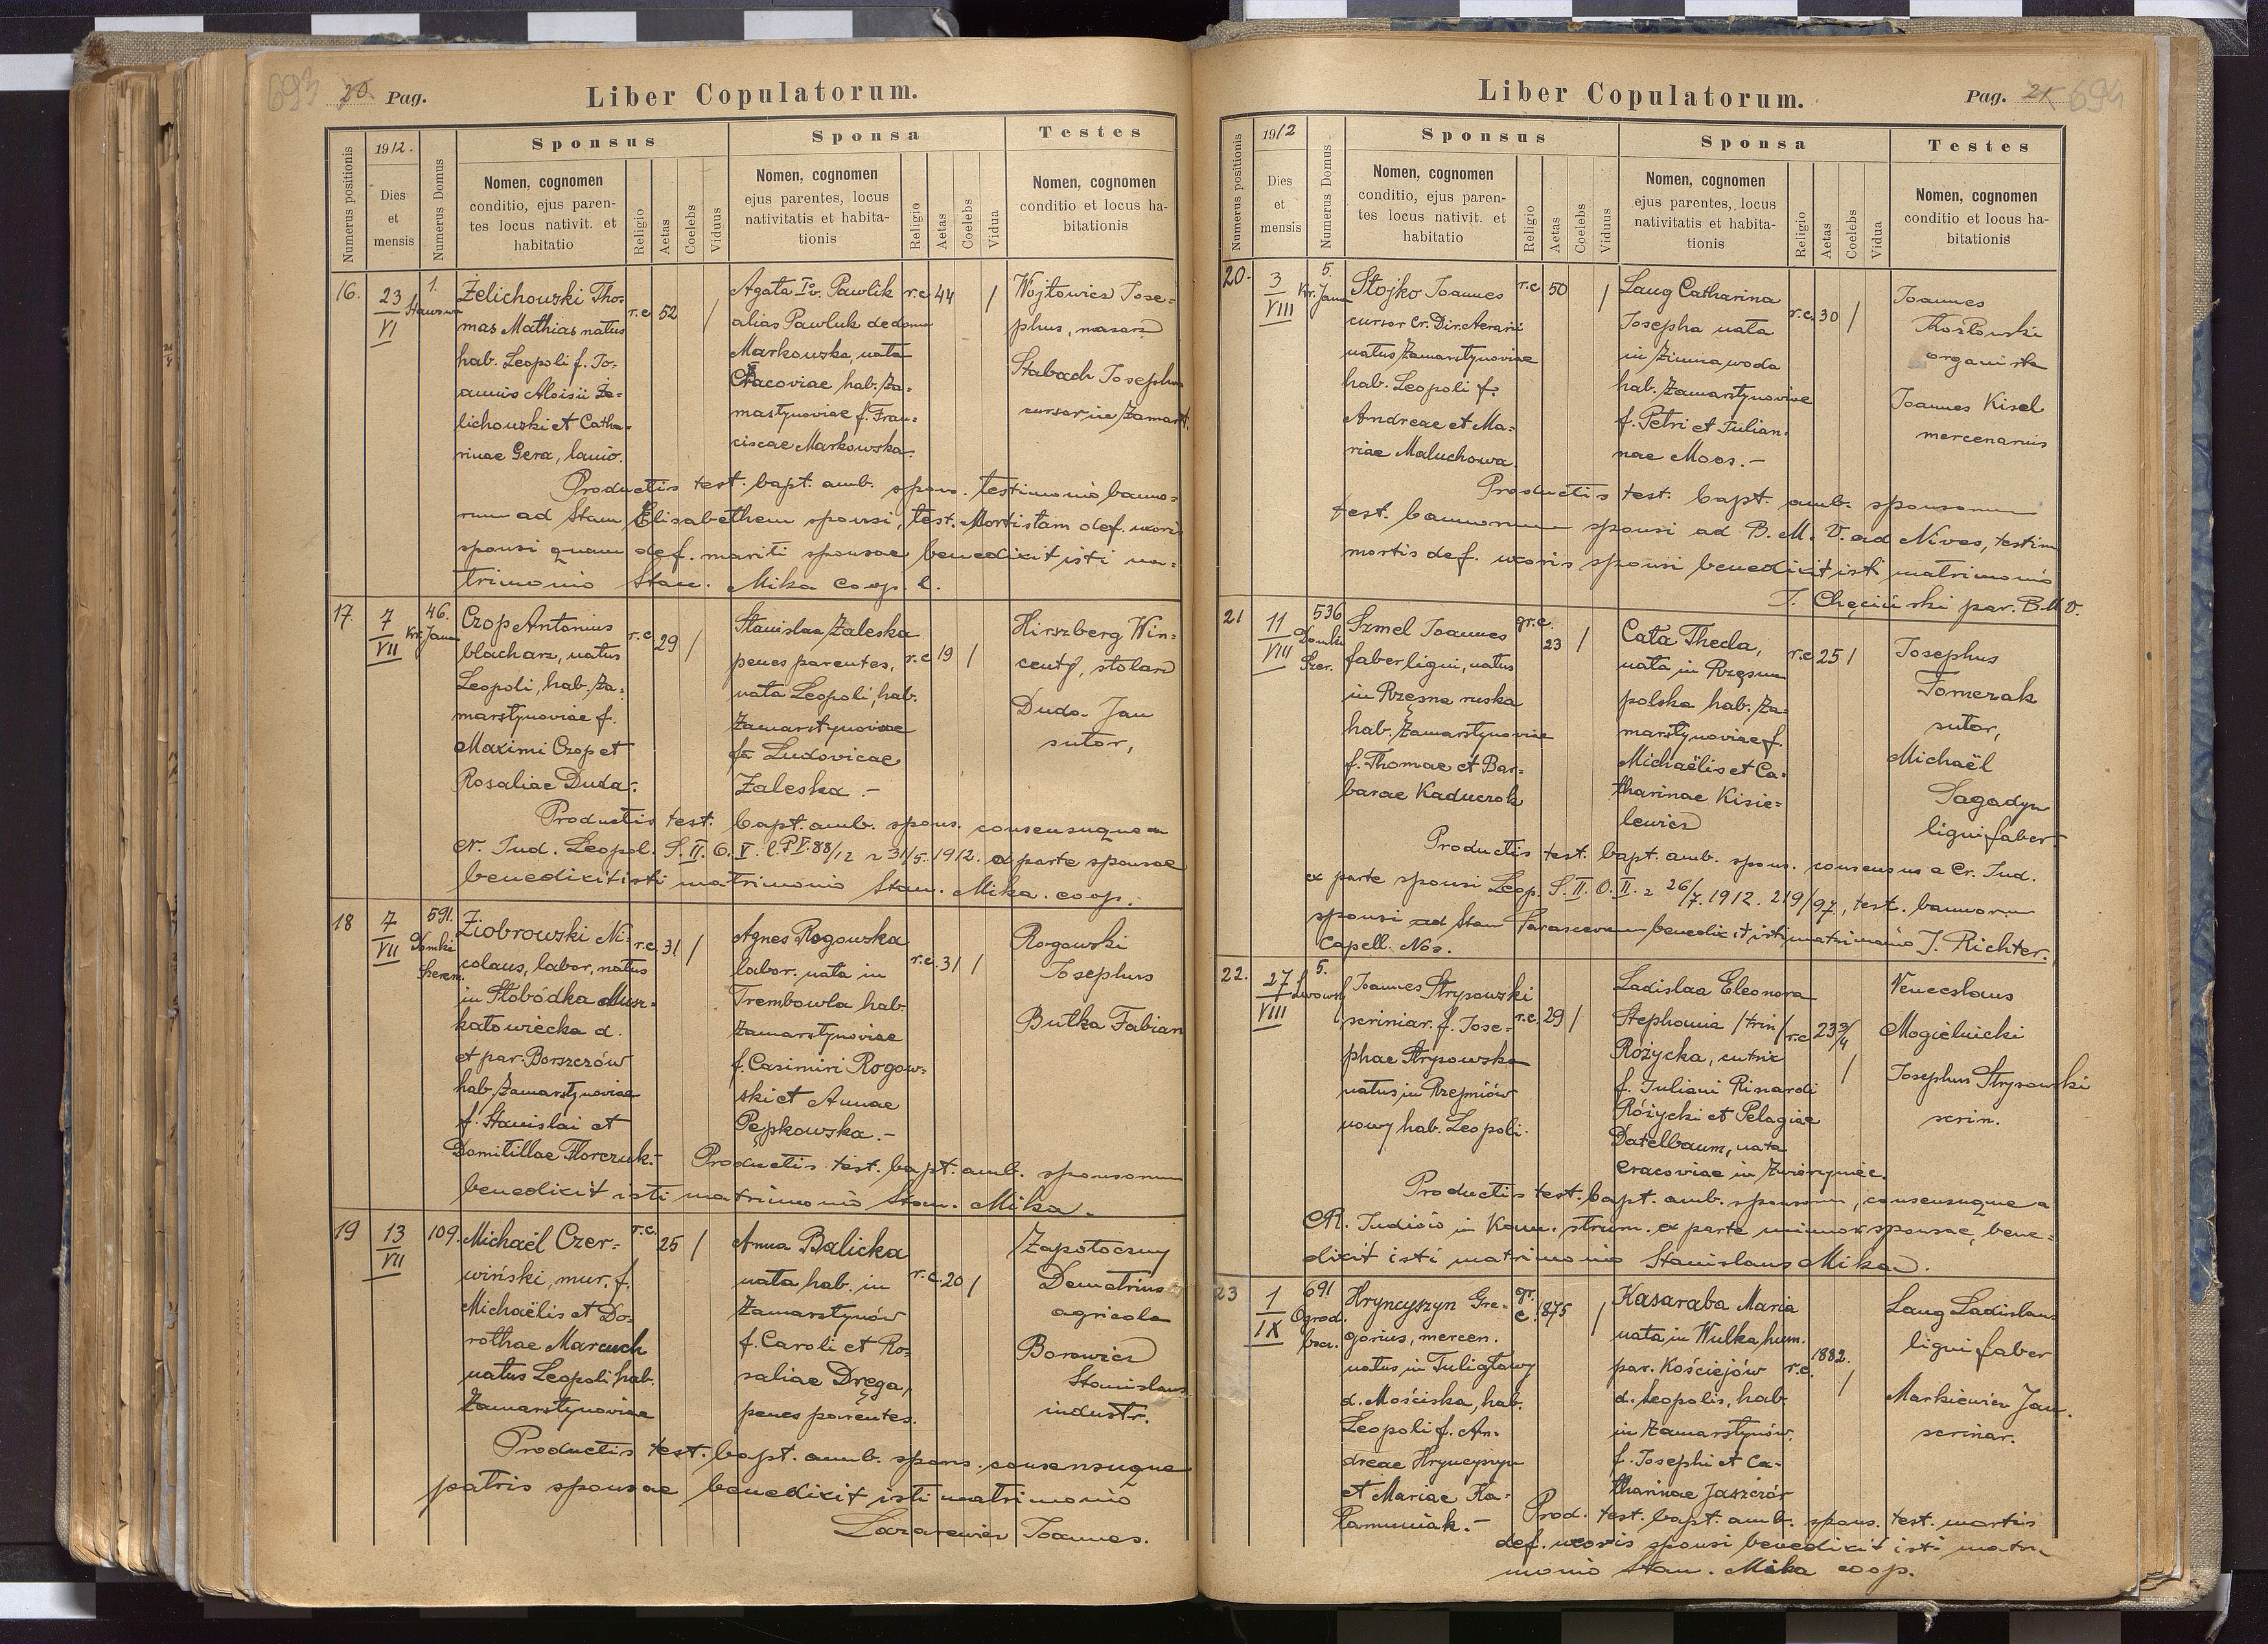 693 20 Pag. Liber Copulatorum.
Numerus positionis
1912.
Dies
et
mensis
Numerus Domus
Sponsus
Nomen, cognomen
conditio, ejus paren-
tes locus nativit. et
habitatio
Religio
Aetas
Coelebs
Viduus
Sponsa
Nomen, cognomen
ejus parentes, locus
nativitatis et habita-
tionis
Religio
Aetas
Coelebs
Vidua
Testes
Nomen, cognomen
conditio et locus ha-
bitationis
16.
23
VI
1.
Żelichowski Tho-
mas Mathias natus
hab. Leopoli f. Jo-
annis Aloisii Że-
lichowski et Catha-
rinae Gera, lanio.
r.c 52 /
Agata Iv. Pawlik
alias Pawluk de domo
Markowska, nata
Cracoviae hab. Za-
marstynoviae f. Fran-
ciscae Markowska.
r.c 44 /
Wojtowicz Jose-
phus, masarz
Stabach Josephus
cursor in Zamarst.
Productis test. bapt. amb. spons. testimonio banno-
rum ad Stam Elisabetham sponsi, test. Mortis tam def. uxoris
sponsi quam def. mariti sponsae benedixit isti ma-
trimonio Stan. Mika coop. l.
17.
7
VII
46.
Kr. Jana
Czop Antonius
blacharz, natus
Leopoli, hab. Za-
marstynoviae f.
Maximi Czop et
Rosaliae Duda.
r.c 29 /
Stanislaa Zaleska
penes parentes,
nata Leopoli, hab.
Zamarstynoviae
fa Ludovicae
Zaleska.-
r.c 19 /
Hirszberg Win-
centy, stolarz
Duda Jan
sutor,
Productis test. bapt. amb. spons. consensuque
cr. Jud. Leopol. S. II. O. V. l. P V. 88/12 z 31/5. 1912. ex parte sponsae
benedixit isti matrimonio Stan. Mika. coop.
18
7
VII
591.
Domki
Szerem.
Ziobrowski Ni-
colaus, labor, natus
in Słobódka Musz-
katowiecka d.
et par. Borszczów
hab. Zamarstynoviae
f. Stanislai et
Domitillae Florczuk.-
r.c. 31 /
Agnes Rogowska
labor. nata in
Trembowla hab.
Zamarstynoviae
f. Casimiri Rogow-
ski et Annae
Pępkowska.-
r.c. 31 /
Rogowski
Josephus
Butka Fabian
Productis test. bapt. amb. sponsorum
benedixit isti matrimonio Stan. Mika.
19
13
VII
109.
Michaël Czer-
wiński, mur. f.
Michaëlis et Do-
rothae Marcuch
natus Leopoli hab.
Zamarstynoviae
r.c. 25 /
Anna Balicka
nata hab. in
Zamarstynów
f. Caroli et Ro-
saliae Dręga,
penes parentes.
r.c. 20 /
Zapotoczny
Demetrius
agricola
Borowicz
Stanislaus
industr.
Productis test. bapt. amb. spons. consensuque
patris sponsae benedixit isti matrimonio
Lazarewicz Joannes.
Liber Copulatorum. Pag. 21 694
Numerus positionis
1912
Dies
et
mensis
Numerus Domus
Sponsus
Nomen, cognomen
conditio, ejus paren-
tes locus nativit. et
habitatio
Religio
Aetas
Coelebs
Viduus
Sponsa
Nomen, cognomen
ejus parentes, locus
nativitatis et habita-
tionis
Religio
Aetas
Coelebs
Vidua
Testes
Nomen, cognomen
conditio et locus ha-
bitationis
20.
3
VIII
5.
Kr. Jana
Stojko Joannes
cursor Cr. Dir. Aerarii
natus Zamarstynoviae
hab. Leopoli f.
Andreae et Ma-
riae Maluchowa.
r.c 50 /
Laug Catharina
Josepha nata
in Zimnawoda
hab. Zamarstynoviae
f. Petri et Julian-
nae Moos.-
r.c. 30 /
Joannes
organista
Joannes Kisel
mercenarius
Productis test. bapt. amb. sponsorum
test. bannorum sponsi ad B. M. V. ad Nives, testim
mortis def. uxoris sponsi benedixit isti matrimonio
J. Chęciński par. B.M.V.
21
11
VIII
536
Domki
Szer.
Szmel Joannes
faber ligni, natus
in Rzęsna ruska
hab. Zamarstynoviae
f. Thomae et Bar-
barae Kaduczok
gr.c. 23 /
Cata Thecla,
nata in Rzęsna
polska hab. Za-
marstynoviae f.
Michaëlis et Ca-
tharinae Kisie-
lewicz
r.c 25 /
Josephus
Tomczak
sutor,
Michaël
Sagadyn
ligni faber.
Productis test. bapt. amb. spons. consensus a Cr. Jud.
ex parte sponsi Leop. S. II. O. II. z 26/7. 1912. 219/97, test. bannorum
sponsi ad Stam Parascevam benedixit isti matrimonio J. Richter.
Capell. Nos.
22.
27
VIII
5.
Lwowsk
Joannes Strysowski
scriniar. f. Jose-
phae Strysowska
natus in Rzepniów
nowy hab. Leopoli.
r.c. 29 /
Ladislaa Eleonora
Stephania /trin/
Różycka,
f. Juliani Rinardi
Różycki et Pelagiae
Datelbaum, nata
Cracoviae in Zwierzyniec.
r.c 23 3/4 /
Venceslaus
Mogielnicki
Josephus Strysowski
scrin.
Productis test. bapt. amb. sponsorum, consensuque a
CR. Judicio in Kam. strum. ex parte minor sponsae, bene-
dixit isti matrimonio Stanislaus Mika.
23
1
IX
691
Ogrod.
Hryncyszyn Gre-
gorius, mercen.
natus in Tuligłowy
d. Mościska, hab.
Leopoli f. An-
dreae Hryncyszyn
et Mariae Ka-
ramuniak.-
gr.c. 1875 /
Kasaraba Maria
nata in Wulka hum.
par. Kościejów
d. Leopolis, hab.
in Zamarstynów.
f. Josephi et Ca-
tharinae Jaszczór
r.c. 1882. /
Laug Ladislaus
ligni faber
Markiewicz Jan.
scriniar.
Prod. test. bapt. amb. spons. test. mortis
def. uxoris sponsi benedixit isti matri
monio Stan. Mika coop.